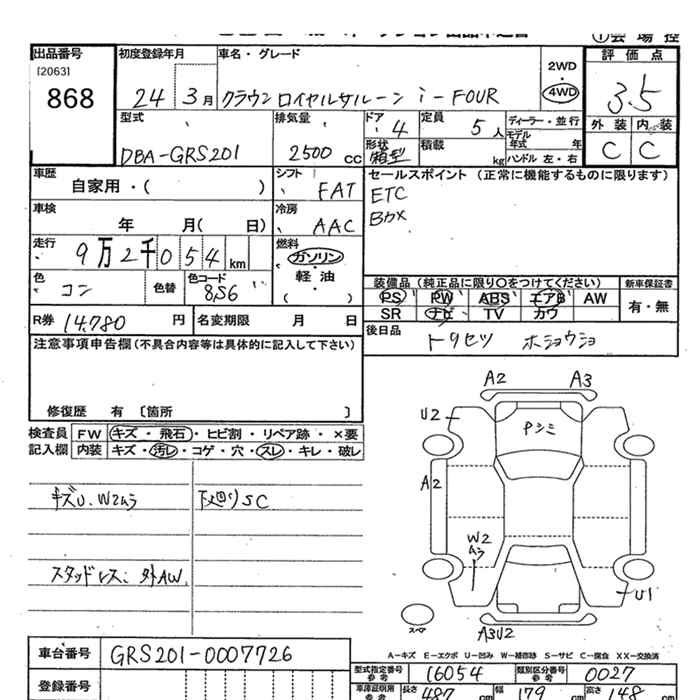 ① 会 場 控
出品番号
[2063]
868
初度登録年月
24 3月
車名・グレード
クラウン ロイヤルサルーン i-FOUR
2WD
・
4WD
評 価 点
3.5
外 装 内 装
C C
型式
DBA-GRS201
排気量
2500 cc
ドア
4
形状
箱型
定員
5 人
積載
kg
ディーラー・並 行
モデル
年式 年
ハンドル 左・右
車歴
自家用・( )
シフト
FAT
セールスポイント (正常に機能するものに限ります)
ETC
車検
年 月( 日)
冷房
AAC
走行
9万2千054km
燃料
ガソリン
軽・油
( )
色
コン
色替
色コード
8S6
装備品 (純正品に限り○をつけてください)
PS PW ABS エアB AW
SR ナビ TV カワ
新車保証書
有・無
R券 14,780 円
名変期限 月 日
後日品
トリセツ ホショウショ
注意事項申告欄 (不具合内容等は具体的に記入して下さい)
修復歴 有 〔箇所 〕
検査員
記入欄
FW キズ・飛石・ヒビ割・リペア跡・×要
内装 キズ・汚レ・コゲ・穴・スレ・キレ・破レ
キズU、W2ムラ
下廻りSC
スタッドレス: 外AW
A2 A3
U2
Pシミ
A2
W2
A3
U1
スペア
A3U2
A－キズ E－エクボ U－凹み W－補修跡 S－サビ C－腐食 XX－交換済
車台番号
GRS201-0007726
登録番号
型式指定番号
参考
16054
類別区分番号
参考
0027
車庫証明用
参考
長さ 487 cm
幅 179 cm
高さ 148 cm